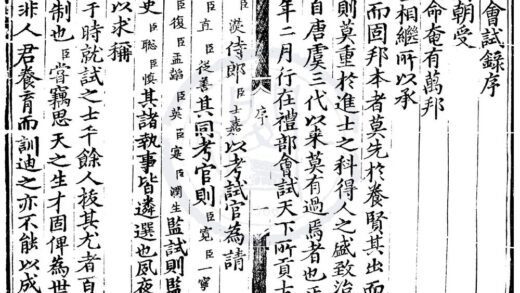 會試錄序
朝受
命奄有萬邦
相繼所以承
而固邦本者莫先於養賢其出而
則莫重於進士之科得人之盛致治
自唐虞三代以来莫有過焉者也
年二月行在禮部會試天下所貢士
序 一
臣濙侍郎臣士嘉以考試官為請
臣直臣從善其同考官則臣寛臣一寧
臣復臣孟臣英臣寔臣潤生監試則監
史臣聡臣慎其諸執事皆遴選也夙夜
以求稱
于時就試之士千餘人拔其尤者百
制也臣嘗竊思天之生才固俾為世
非人君養育而訓迪之亦不能以成